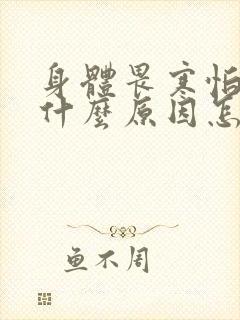 身體畏寒怕
什麼原因怎
鱼不周